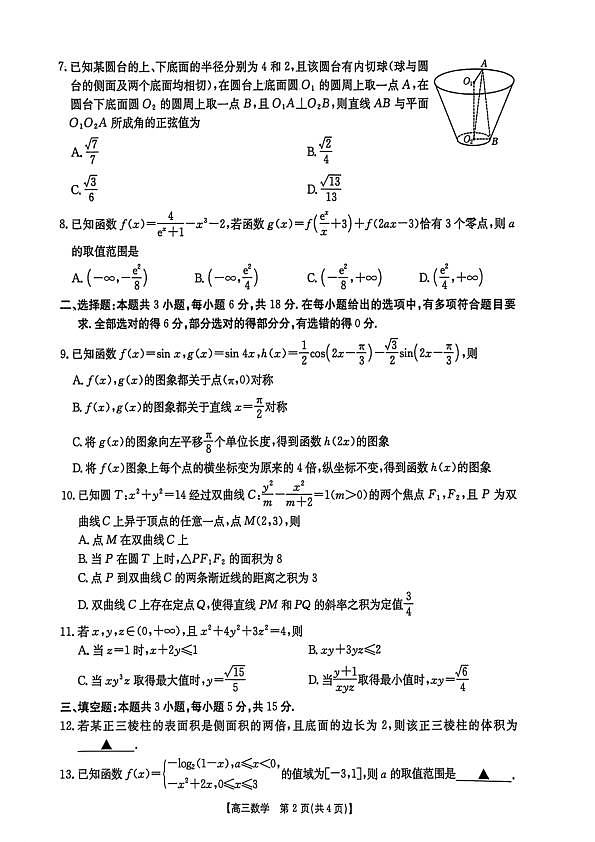 7. 已知某圆台的上、下底面的半径分别为 4 和 2,且该圆台有内切球(球与圆
台的侧面及两个底面均相切),在圆台上底面圆 O₁ 的圆周上取一点 A,在
圆台下底面圆 O₂ 的圆周上取一点 B,且 O₁A⊥O₂B,则直线 AB 与平面
O₁O₂A 所成角的正弦值为
A. √7/7 B. √2/4
C. √3/6 D. √13/13
A
O₁
O₂
B
8. 已知函数 f(x)=4/(eˣ+1)−x³−2,若函数 g(x)=f(eˣ/x+3)+f(2ax−3)恰有 3 个零点,则 a
的取值范围是
A. (−∞,−e²/8) B. (−∞,e²/4) C. (−e²/8,+∞) D. (e²/4,+∞)
二、选择题:本题共 3 小题,每小题 6 分,共 18 分.在每小题给出的选项中,有多项符合题目要
求.全部选对的得 6 分,部分选对的得部分分,有选错的得 0 分.
9. 已知函数 f(x)=sin x,g(x)=sin 4x,h(x)=1/2cos(2x−π/3)−√3/2sin(2x−π/3),则
A. f(x),g(x)的图象都关于点(π,0)对称
B. f(x),g(x)的图象都关于直线 x=π/2对称
C. 将 g(x)的图象向左平移π/8个单位长度,得到函数 h(2x)的图象
D. 将 f(x)图象上每个点的横坐标变为原来的 4 倍,纵坐标不变,得到函数 h(x)的图象
10. 已知圆 T:x²+y²=14 经过双曲线 C:y²/m−x²/(m+2)=1(m>0)的两个焦点 F₁,F₂,且 P 为双
曲线 C 上异于顶点的任意一点,点 M(2,3),则
A. 点 M 在双曲线 C 上
B. 当 P 在圆 T 上时,△PF₁F₂ 的面积为 8
C. 点 P 到双曲线 C 的两条渐近线的距离之积为 3
D. 双曲线 C 上存在定点 Q,使得直线 PM 和 PQ 的斜率之积为定值3/4
11. 若 x,y,z∈(0,+∞),且 x²+4y²+3z²=4,则
A. 当 z=1 时,x+2y≤1 B. xy+3yz≤2
C. 当 xy³z 取得最大值时,y=√15/5 D. 当(y+1)/xyz取得最小值时,xy=√6/4
三、填空题:本题共 3 小题,每小题 5 分,共 15 分.
12. 若某正三棱柱的表面积是侧面积的两倍,且底面的边长为 2,则该正三棱柱的体积为
▲ .
13. 已知函数 f(x)={−log₂(1−x),a≤x<0, −x²+2x,0≤x≤3 的值域为[−3,1],则 a 的取值范围是 ▲ .
【高三数学 第 2 页(共 4 页)】